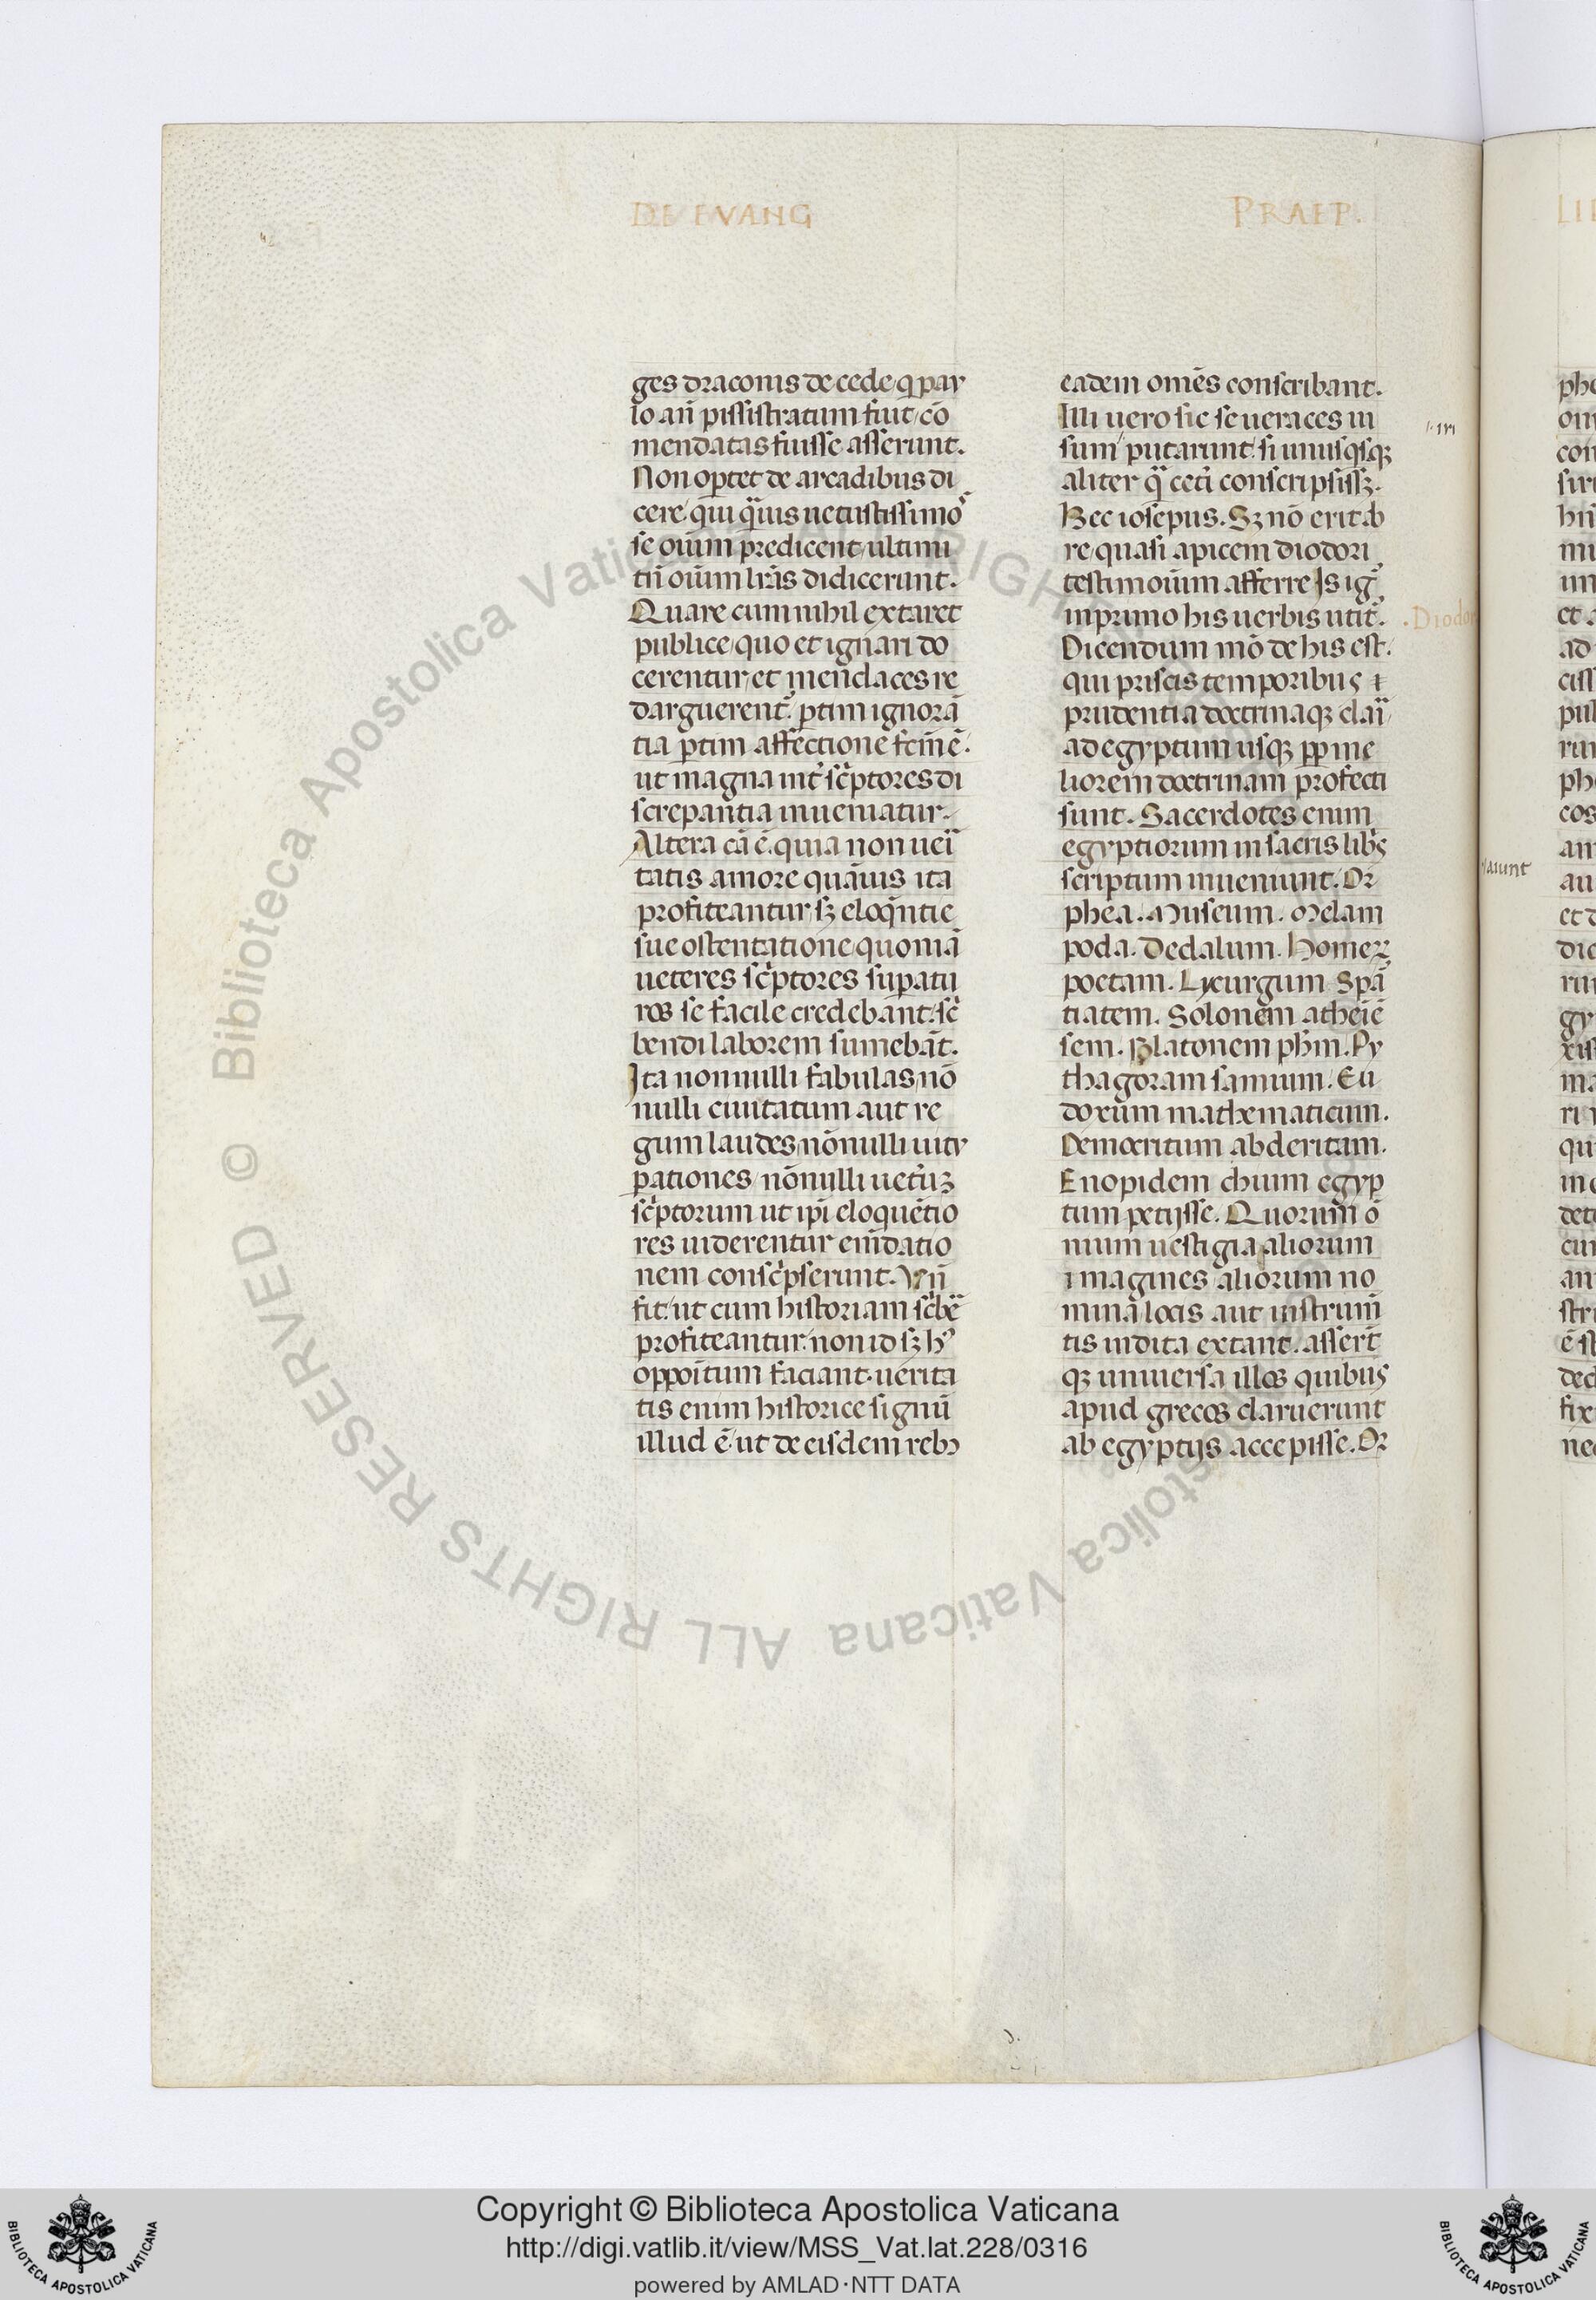 DE EVANG
PRAEP.
ges draconis de cede q̃ pau
lo añ pissistratum fuit cõ
mendatas fuisse asserunt.
Non oꝑtet de arcadibus di
cere, qui q̃uis uetustissimoˢ
se oium̄ predicent, ultimi
tñ oium̄ lr̃as didicerunt.
Quare cum nihil extaret
publice, quo et ignari do
cerentur, et mendaces re
darguerent̃, ꝑtim ignorã
tia ꝑtim affectione scm̃ ẽ.
ut magna int̃ sc̃ptores di
screpantia inueniatur.
Altera cã ẽ, quia non ueĩ
tatis amore quãuis ita
profiteantur, sꝫ eloq̃ntie
sue ostentatione quoniã
ueteres sc̃ptores suꝑatu
ros se facile credebant, sc̃
bendi laborem sumebãt.
Ita nonnulli fabulas, nõ
nulli ciuitatum aut re
gum laudes, nõnulli uitu
ꝑationes, nõnulli uetuꝫ
sc̃ptorum ut ip̃i eloquẽtio
res uiderentur em̃datio
nem consc̃pserunt. Vñ
fit, ut cum historiam sc̃bẽ
profiteantur, non id sꝫ hˀ
oppoĩtum faciant, uerita
tis enim historice signũ
illud ẽ, ut de eisdem rebꝰ
eadem omẽs conscribant.
Illi uero sic se ueraces ui
sum putarunt, si unusqsqꝫ
aliter q̃ cetĩ conscripsissꝫ.
Hec iosepus. Sꝫ nõ erit ab
re, quasi apicem diodori
testimoĩum afferre Is ig̃
in primo his uerbis utit̃.
Dicendum mõ de his est.
qui priscis temporibus ⁊
prudentia doctrinaqꝫ claĩ
ad egyptum usqꝫ ꝓp me
liorem doctrinam profecti
sunt. Sacerdotes enim
egyptiorum in sacris libꝭ
scriptum inueniunt. Or
phea. Museum. Melam
poda. Dedalum. Homeꝝ
poetam. Lycurgum Spã
tiatem. Solonem atheiẽ
sem. Platonem ph̃m. Py
thagoram samium. Eu
doxum mathematicum.
Democritum abderitam.
Enopidem chium egyp
tum petijsse. Quorum õ
nium uestigia aliorum
imagines aliorum no
minã locis aut instrum̃
tis indita extant. assert̃
qꝫ uniuersa illos quibus
apud grecos claruerunt
ab egyptijs accepisse. Or
.Diodor
aiunt
© Biblioteca Apostolica Vaticana ALL RIGHTS RESERVED
Copyright © Biblioteca Apostolica Vaticana
http://digi.vatlib.it/view/MSS_Vat.lat.228/0316
powered by AMLAD·NTT DATA
BIBLIOTECA APOSTOLICA VATICANA
BIBLIOTECA APOSTOLICA VATICANA